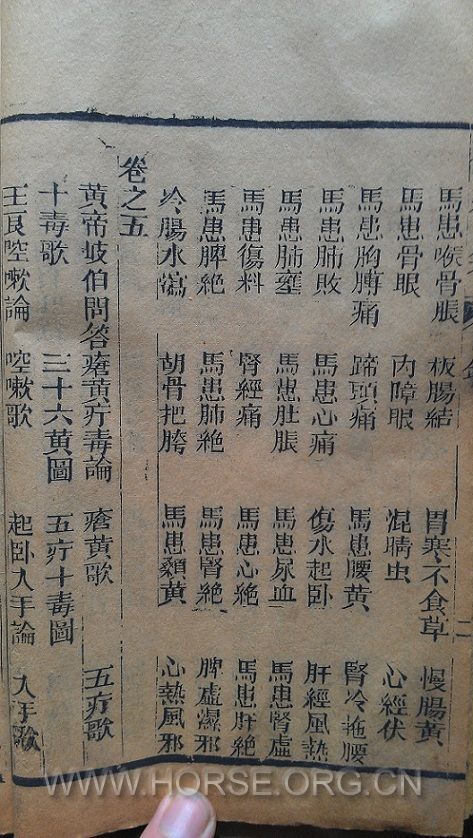 馬患喉骨脹 板腸結 胃寒不食草 慢腸黃
馬患骨眼 內障眼 混睛虫 心經伏
馬患胸膊痛 蹄頭痛 馬患腰黃 腎冷拖腰
馬患肺敗 馬患心痛 傷水起卧 肝經風熱
馬患肺壅 馬患肚脹 馬患尿血 馬患腎虛
馬患傷料 腎經痛 馬患心絶 馬患肝絶
馬患脾絶 馬患肺絶 馬患腎絶 脾虛濕邪
冷腸水瀉 胡骨把胯 馬患顙黃 心熱風邪
卷之五
黃帝岐伯問答瘡黃疔毒論 瘡黃歌 五疔歌
十毒歌 三十六黃圖 五疔十毒圖
王良啌嗽論 啌嗽歌 起卧入手論 入手歌
二
WWW.HORSE.ORG.CN